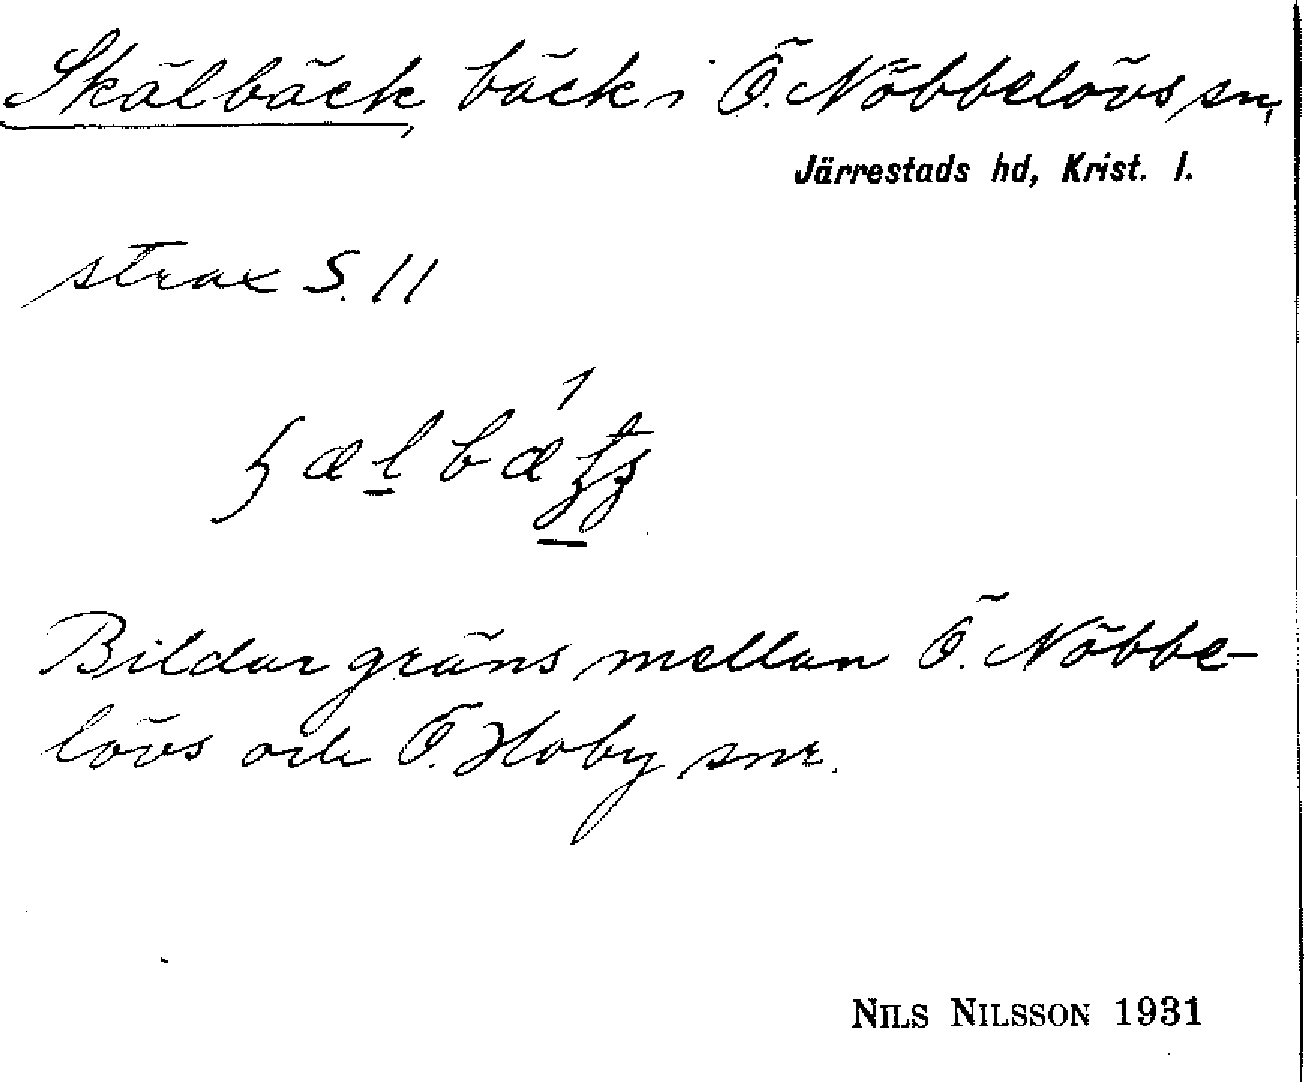 Skälbäck, bäck i Ö. Nöbbelövs sn,
Järrestads hd, Krist. l.
strax S. 11
Bildar gräns mellan Ö. Nöbbe-
lövs och Ö. Hoby snr.
NILS NILSSON 1931